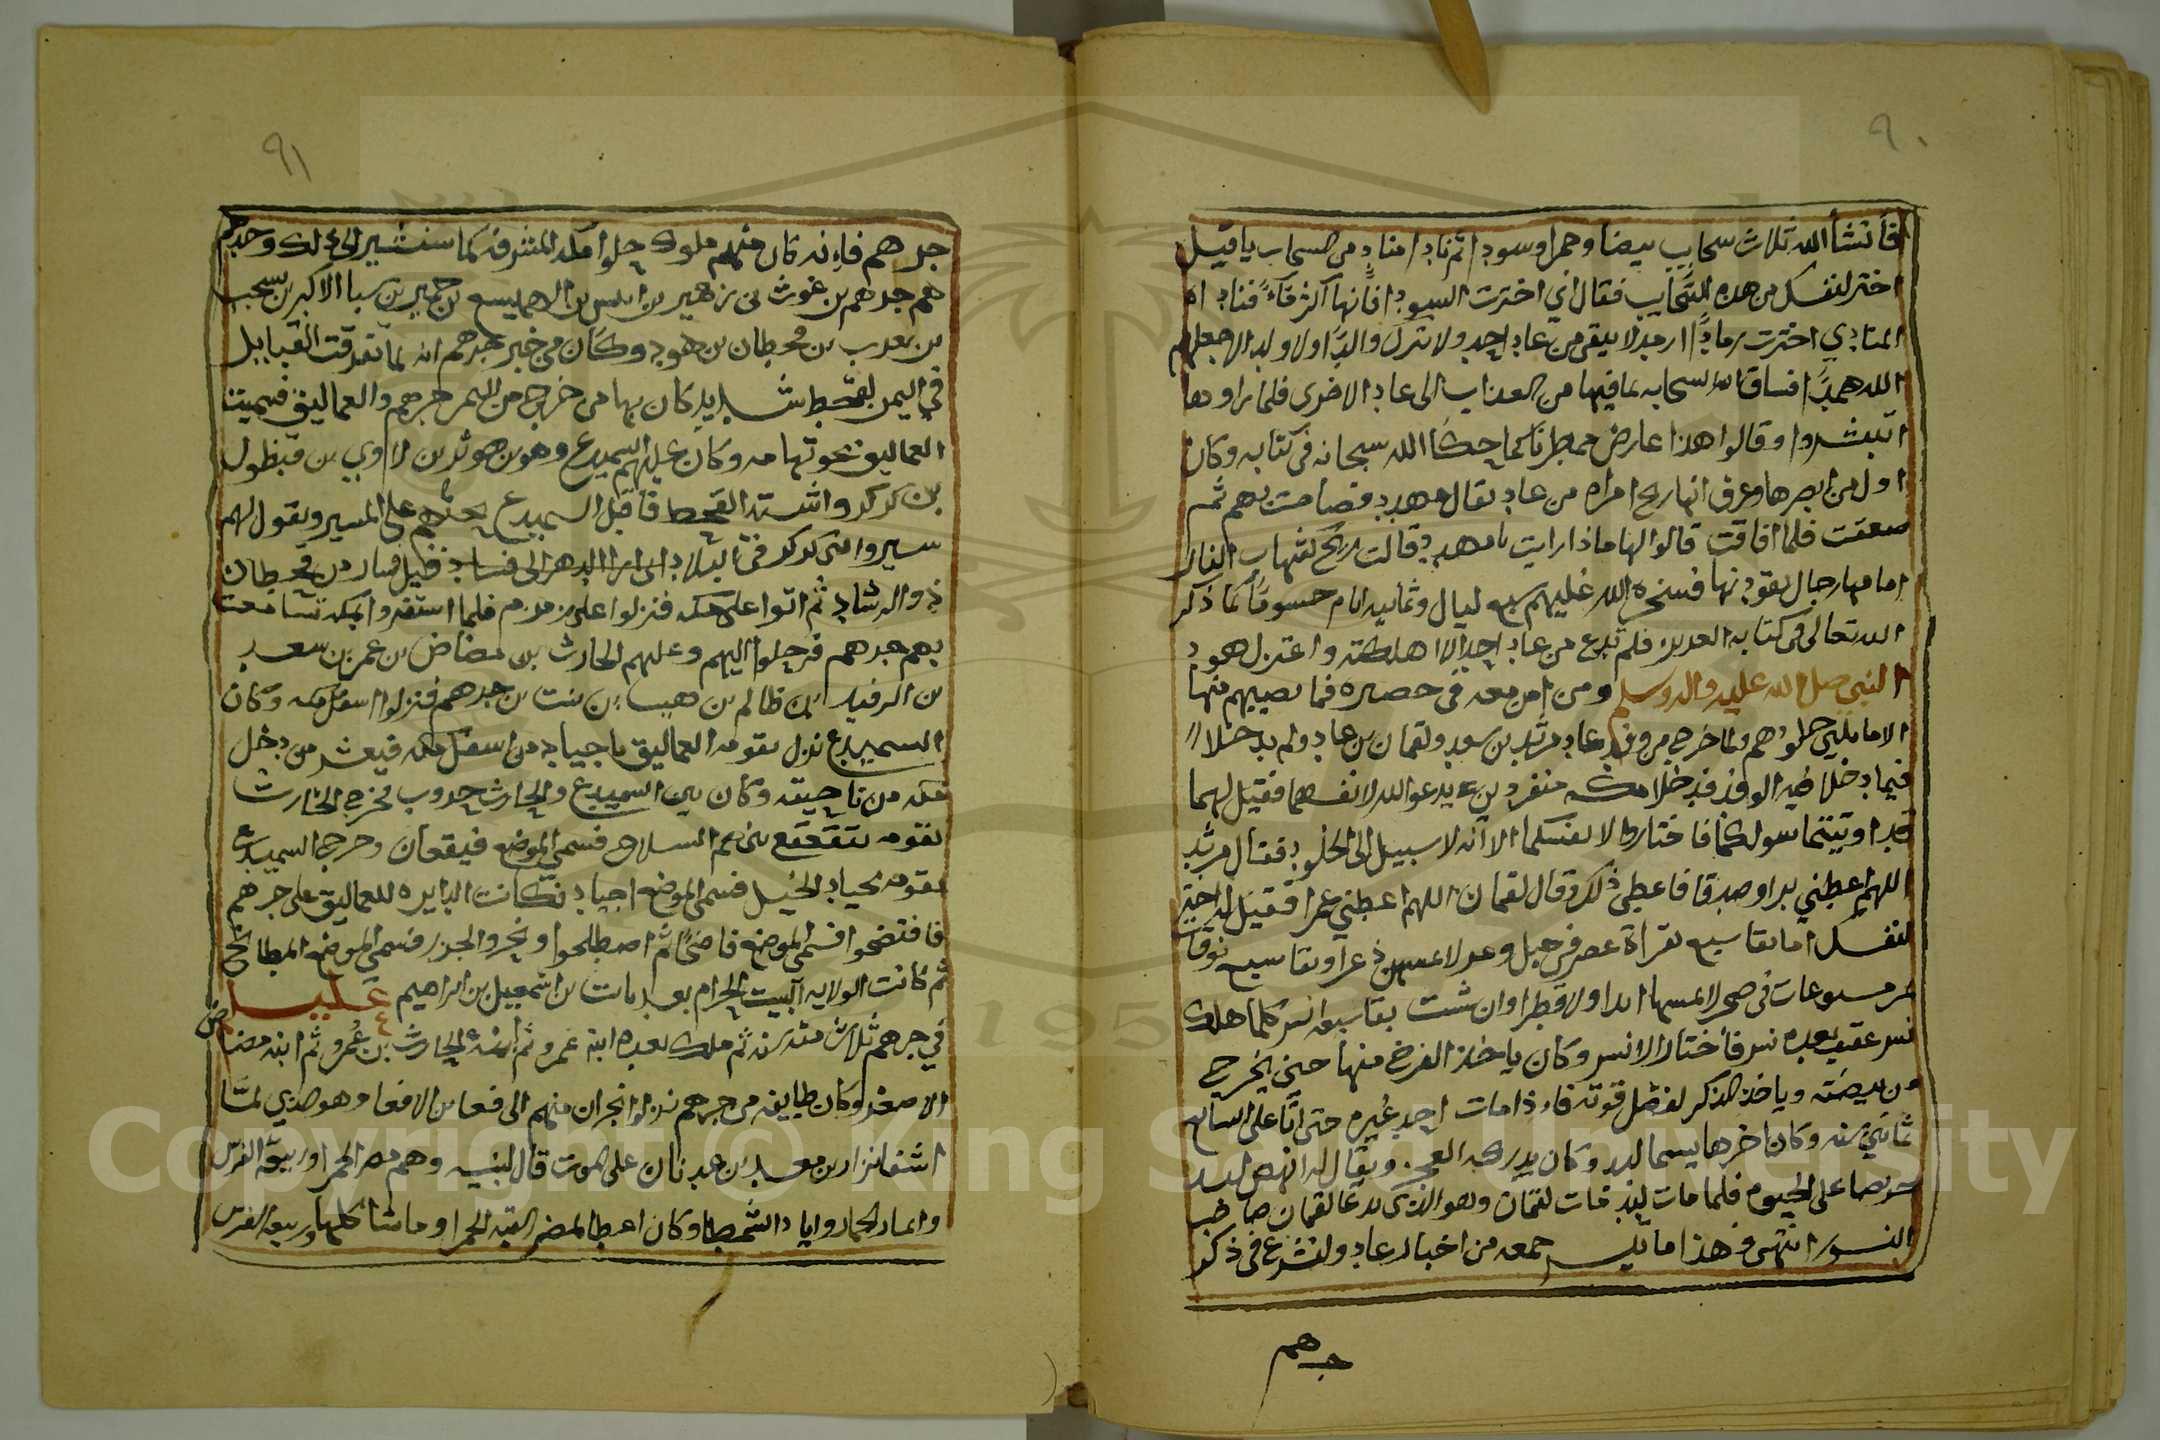 ٩٠
فأنشأ الله ثلاث سحايب بيضا وحمرا وسودا ثم نادا مناد من السحاب يا قيل
اختر لنفسك من هذه السحايب فقال اني اخترت السودا فانها اكثر مآء فنادا
المنادي اخترت رمادًا ارمدا لا يبقى من عاد احد ولا تترك والدا ولا ولد الا جعلهم
الله همدًا فساق الله السحابه بما فيها من العذاب الى عاد الاخرى فلما راوها
استبشروا وقالوا هذا عارض ممطرنا كما حكا الله سبحانه في كتابه وكان
اول من ابصرها وعرف انها ريح امراه من عاد يقال مهدد فصاحت بهم ثم
صعقت فلما افاقت قالوا لها ماذا رايت يا مهدد قالت ريح كشهاب النار
امامها رجال يقودنها فسخره الله عليهم سبع ليال وثمانيه ايام حسومًا كما ذكر
الله تعالى في كتابه العزيز فلم تدع من عاد احدا الا اهلكته واعتزل هود
النبي صلى الله عليه واله وسلم ومن امن معه في حصيره فما يصيبهم منها
الا ما يلين جلودهم ولما خرج من وفد عاد مرثد بن سعد ولقمان بن عاد ولم يدخلا
فيما دخلا فيه الوفد فدخلا مكه منفردين يدعو الله لانفسهما فقيل لهما
قد اوتيتما سولكما فاختارا لانفسكما الا انه لا سبيل الى الخلود فقال مرثد
اللهم اعطني برا وصدقا فاعطي ذلك وقال لقمان اللهم اعطني عمرا فقيل له اختر
لنفسك اما بقا سبع بقراة عفر في جبل وعر لا يمسهن ذعر او بقا سبع نوقات
في صحر لا يمسها ندا ولا قطر او ان شت بقا سبعه انسر كلما هلك
نسر عقب بعده نسر فأختار الانسر وكان ياخذ الفرخ منها حين يخرج
من بيضته وياخذ الذكر لفضل قوته فاذا مات اخذ غيره حتى اتا على السابع
ثمانين سنه وكان اخرها يسما لبد وكان يدركه العجز ويقال له انهض لبد
حريصا على الحيوه فلما مات لبد مات لقمان وهو الذي يدعا لقمان صاحب
النسور انتهى هذا ما تيسر جمعه من اخبار عاد ولنشرع في ذكر
جرهم
٩١
جرهم فإنه كان منهم ملوك حلوا مكه المشرفه كما سنشير الى ذلك وجرهم
هم جرهم بن غوث بن زهير بن ايمن بن الهميسع بن حمير بن سبا الاكبر بن يشجب
بن يعرب بن قحطان بن هود وكان من خبر جرهم انه لما تفرقت القبايل
في اليمن لقحط شديد كان بها من خرج من اليمن جرهم والعماليق فسميت
العماليق نحو تهامه وكان عليهم السميدع وهو بن هوثر بن لاوي بن قنطول
بن كركر واشتد القحط فاقبل السميدع يحثهم على المسير ويقول لهم
سيروا بني كركر في البلاد انى ارا الدهر الى فساد قيل صار من قحطان
ذو الرشاد ثم اتوا على مكه فنزلوا على زمزم فلما استقروا بمكه تسامعت
بهم جرهم فرحلوا اليهم وعليهم الحارث بن مضاض بن عمر بن سعد
بن الرقيب بن ظالم بن هيب بن نبت بن جرهم فنزلوا اسفل مكه وكان
السميدع نزل بقومه العماليق باجياد من اسفل مكه فيعشر من دخل
مكه من ناحيته وكان بين السميدع والحارث حروب فخرج الحارث
بقومه تتقعقع بينهم السلاح فسمي الموضع قيقعان وخرج السميدع
بقومه بجياد الخيل فسمى الموضع اجياد فكانت الدايره للعماليق على جرهم
فافتضحوا فسمى الموضع فاضحًا ثم اصطلحوا ونحروا الجزر فسمى الموضع المطابخ
ثم كانت الولايه البيت الحرام بعد نابت بن اسمعيل بن ابراهيم عليهما
في جرهم ثلاث مئه سنه ثم ملك بعده ابنه عمرو ثم ابنه الحارث بن عمرو ثم ابنه مضاض
الاصغر وكان طايفه من جرهم نزلوا نجران منهم الافعا بن الافعا وهو الذي لمّا
اشفا نزار بن معد بن عدنان على الموت قال لبنيه وهم مضر الحمرا وربيعه الفرس
وانمار الحمار واياد الشمطا وكان اعطا لمضر القبه الحمرا وما شاكلها وربيعه الفرس
Copyright © King Saud University
1957